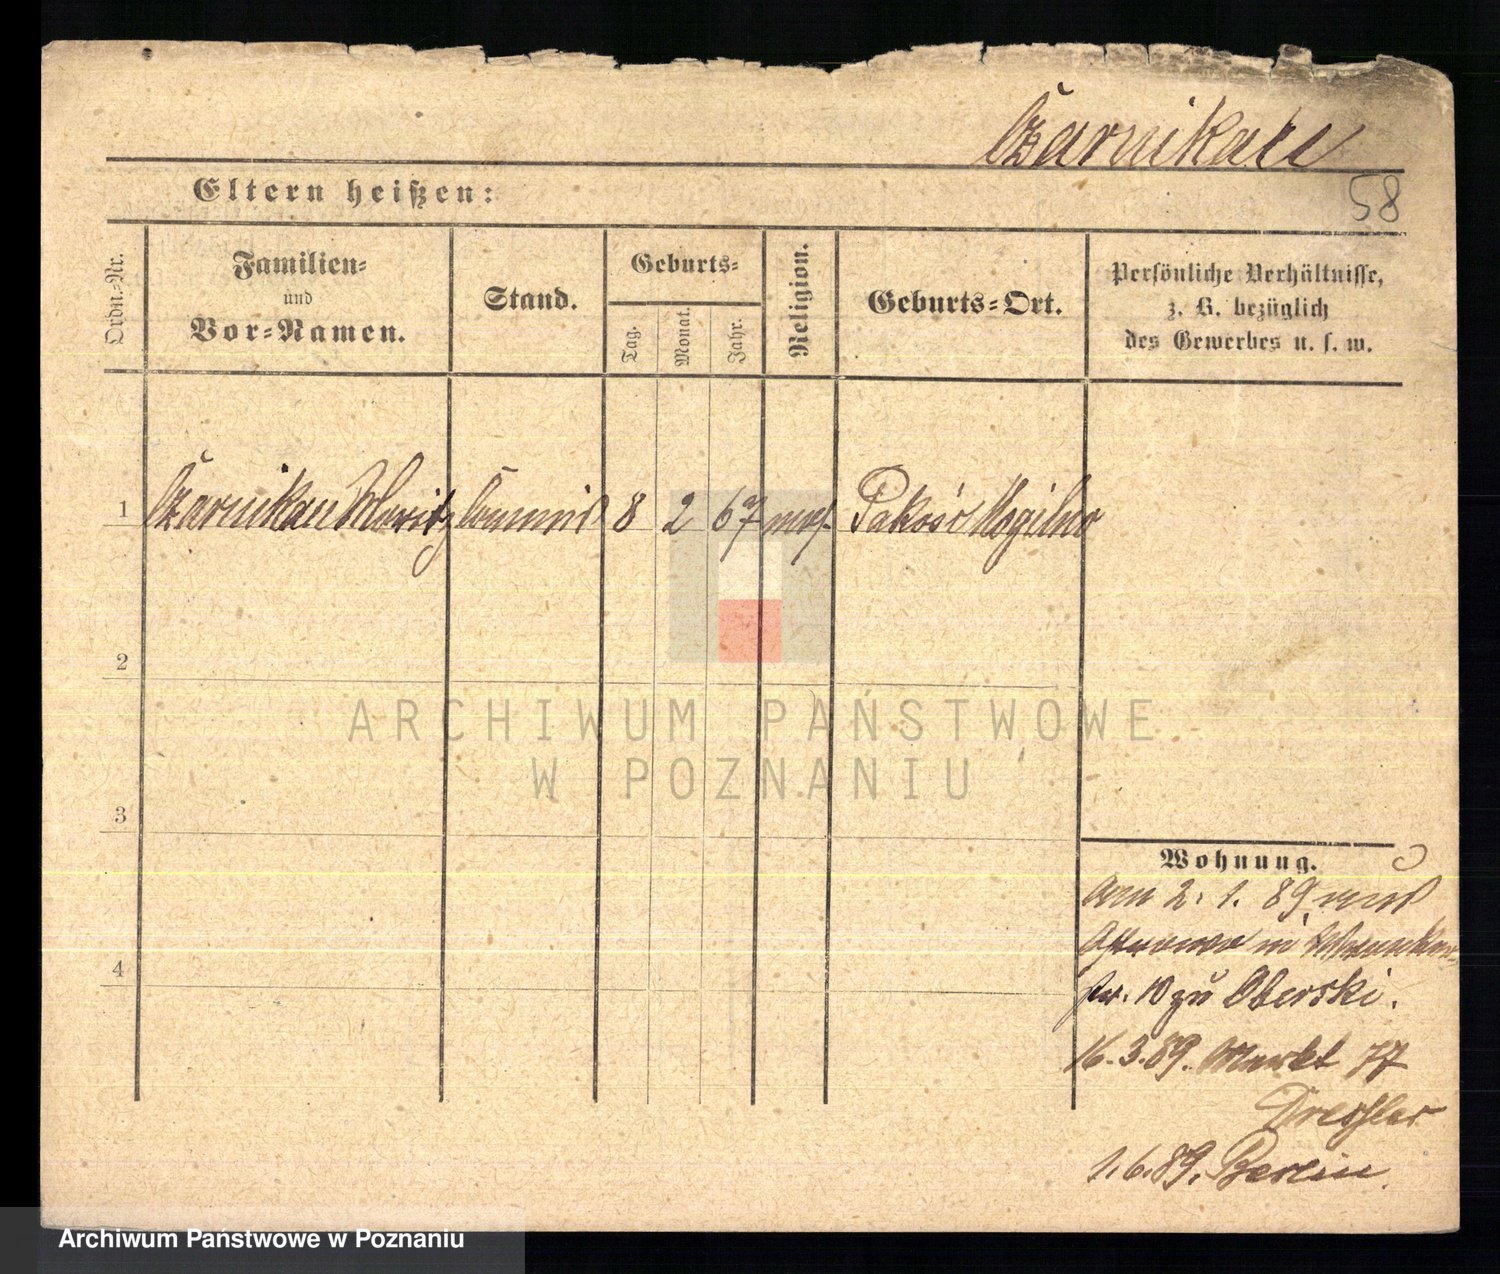 Czarnikau
Eltern heißen:
58
Ordn.-Nr.
Familien-
und
Vor-Namen.
Stand.
Geburts-
Tag.
Monat.
Jahr.
Religion.
Geburts-Ort.
Persönliche Verhältnisse,
z. B. bezüglich
des Gewerbes u. s. w.
1 Czarnikau Moritz Commis 8 2 67 mos. Pakość Mogilno
2
3
4
Wohnung.
am 2. 1. 89 aus
in Wronker-
str. 10 zu Oberski.
16.3.89. Markt 77
Dressler
1.6.89. Berlin.
ARCHIWUM PAŃSTWOWE
W POZNANIU
Archiwum Państwowe w Poznaniu